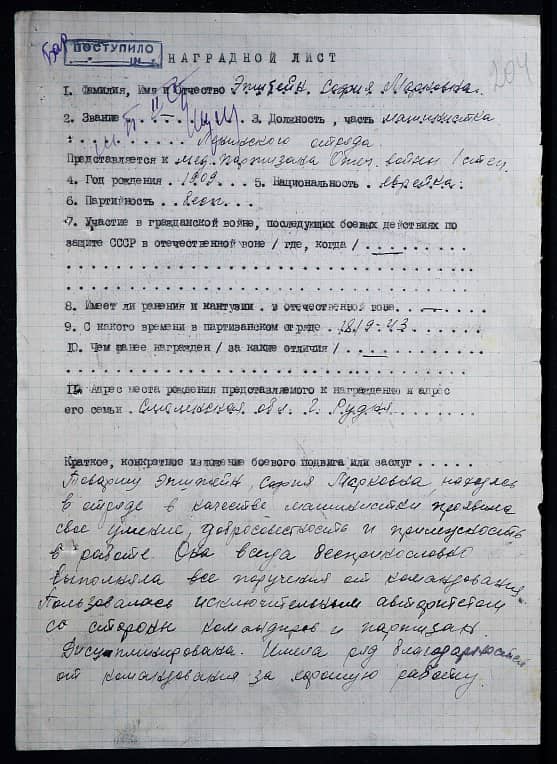 ПОСТУПИЛО
204
НАГРАДНОЙ ЛИСТ
I. Фамилия, Имя и Отчество Эпштейн София Марковна.
2. Звание . — . . . 3. Должность, часть машинистка
отряда
Представляется к мед. Партизана Отеч. войны I степ.
4. Год рождения . 1909 . . . 5. Национальность . еврейка.
6. Партийность . . беспп. . . .
7. Участие в гражданской войне, последующих боевых действиях по
защите СССР в отечественной воне / где, когда / . — . . . .
8. Имеет ли ранения и кантузии . в отечественной вове. . — . . . .
9. С какого времени в партизанском отряде . 18/9-43 . . . .
10. Чем ранее награжден / за какие отличия / . . — . . . .
II. Адрес места рождения представляемого к награждению и адрес
его семьи . Смоленская обл. г. Рудня. . . . . .
Краткое, конкретное изложение боевого подвига или заслуг . . . . .
Товарищ Эпштейн София Марковна, находясь
в отряде в качестве машинистки проявила
свое умение, добросовестность и
в работе. Она всегда беспрекословно
выполняла все поручения от командования.
Пользовалась исключительным авторитетом
со стороны командиров и партизан.
Дисциплинирована. Имела ряд благодарностей
от командования за хорошую работу.